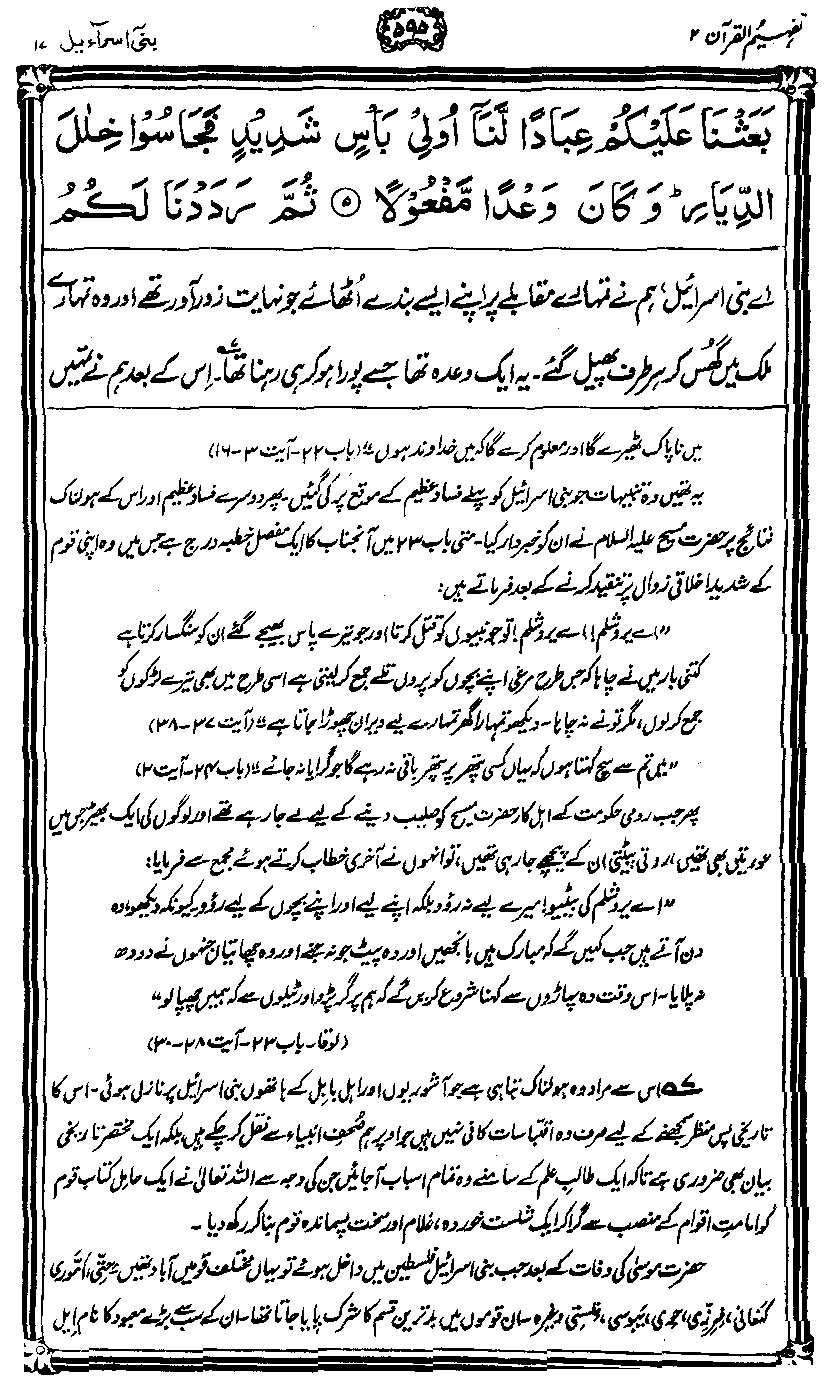 تفہیم القرآن ۲
۵۹۵
بنی اسرآءیل ۱۷
بَعَثْنَا عَلَيْكُمْ عِبَادًا لَّنَآ اُولِيْ بَاْسٍ شَدِيْدٍ فَجَاسُوْا خِلٰلَ
الدِّيَارِ ؕ وَكَانَ وَعْدًا مَّفْعُوْلًا ۵ ثُمَّ رَدَدْنَا لَكُمُ
اے بنی اسرائیل، ہم نے تمہارے مقابلے پر اپنے ایسے بندے اُٹھائے جو نہایت زور آور تھے اور وہ تمہارے
ملک میں گھُس کر ہر طرف پھیل گئے۔ یہ ایک وعدہ تھا جسے پورا ہو کر ہی رہنا تھا۔ اِس کے بعد ہم نے تمہیں
میں ناپاک ٹھیرے گا اور معلوم کرے گا کہ میں خداوند ہوں“ (باب ۲۲-آیت ۳-۱۶)
یہ تھیں وہ تنبیہات جو بنی اسرائیل کو پہلے فسادِ عظیم کے موقع پر کی گئیں۔ پھر دوسرے فسادِ عظیم اور اس کے ہولناک
نتائج پر حضرت مسیح علیہ السلام نے ان کو خبردار کیا۔ متی باب ۲۳ میں آنجناب کا ایک مفصل خطبہ درج ہے جس میں وہ اپنی قوم
کے شدید اخلاقی زوال پر تنقید کرنے کے بعد فرماتے ہیں:
”اے یروشلم! اے یروشلم! تو جو نبیوں کو قتل کرتا اور جو تیرے پاس بھیجے گئے ان کو سنگسار کرتا ہے
کتنی بار میں نے چاہا کہ جس طرح مرغی اپنے بچوں کو پروں تلے جمع کر لیتی ہے اسی طرح میں بھی تیرے لڑکوں کو
جمع کر لوں، مگر تو نے نہ چاہا۔ دیکھو تمہارا گھر تمہارے لیے ویران چھوڑا جاتا ہے“ (آیت ۳۷-۳۸)
”میں تم سے سچ کہتا ہوں کہ یہاں کسی پتھر پر پتھر باقی نہ رہے گا جو گرایا نہ جائے“ (باب ۲۴-آیت ۲)
پھر جب رومی حکومت کے اہل کار حضرت مسیح کو صلیب دینے کے لیے لے جا رہے تھے اور لوگوں کی ایک بھیڑ جس میں
عورتیں بھی تھیں، روتی پیٹتی ان کے پیچھے جا رہی تھیں، تو انہوں نے آخری خطاب کرتے ہوئے مجمع سے فرمایا:
”اے یروشلم کی بیٹیو! میرے لیے نہ رؤو بلکہ اپنے لیے اور اپنے بچوں کے لیے رؤو کیونکہ دیکھو وہ
دن آتے ہیں جب کہیں گے کہ مبارک ہیں بانجھیں اور وہ پیٹ جو نہ جنے اور وہ چھاتیاں جنھوں نے دودھ
نہ پلایا۔ اس وقت وہ پہاڑوں سے کہنا شروع کریں گے کہ ہم پر گر پڑو اور ٹیلوں سے کہ ہمیں چھپا لو“
(لوقا۔ باب ۲۳-آیت ۲۸-۳۰)
۷؎ اس سے مراد وہ ہولناک تباہی ہے جو آشوریوں اور اہلِ بابل کے ہاتھوں بنی اسرائیل پر نازل ہوئی۔ اس کا
تاریخی پس منظر سمجھنے کے لیے صرف وہ اقتباسات کافی نہیں ہیں جو اوپر ہم صُحفِ انبیاء سے نقل کر چکے ہیں، بلکہ ایک مختصر تاریخی
بیان بھی ضروری ہے تاکہ ایک طالبِ علم کے سامنے وہ تمام اسباب آ جائیں جن کی وجہ سے اللہ تعالیٰ نے ایک حاملِ کتاب قوم
کو امامتِ اقوام کے منصب سے گرا کر ایک شکست خوردہ، غلام اور سخت پسماندہ قوم بنا کر رکھ دیا۔
حضرت موسیٰ کی وفات کے بعد جب بنی اسرائیل فلسطین میں داخل ہوئے تو یہاں مختلف قومیں آباد تھیں۔ حِتّی، اَمَّوری
کنعانی، فِرِزّی، حِوی، یبوسی، فلستی وغیرہ۔ ان قوموں میں بدترین قسم کا شرک پایا جاتا تھا۔ ان کے سب سے بڑے معبود کا نام ایل